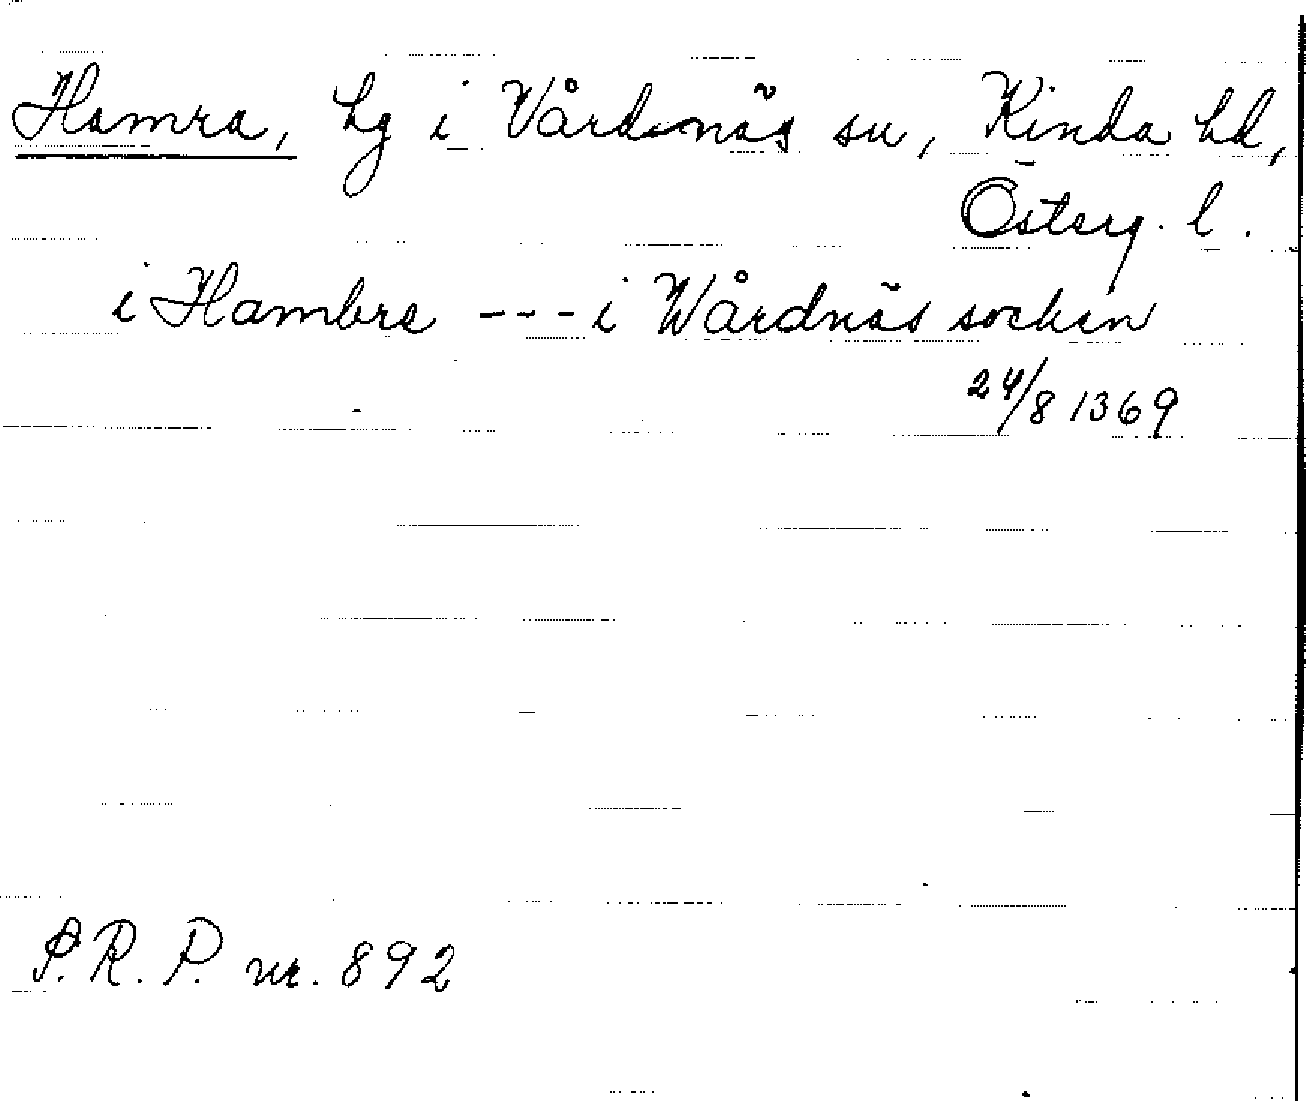 Hamra, hg i Vårdnäs sn, Kinda hd,
Österg. l.
i Hambre --- i Wårdnäs sockin
24/8 1369
S.R.P. nr. 892